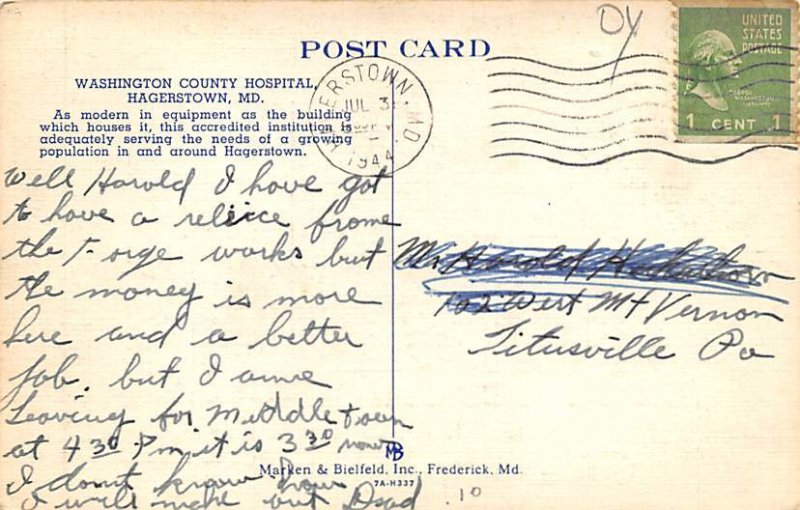 POST CARD
WASHINGTON COUNTY HOSPITAL,
HAGERSTOWN, MD.
As modern in equipment as the building
which houses it, this accredited institution is
adequately serving the needs of a growing
population in and around Hagerstown.
HAGERSTOWN, MD
JUL 3
1944
UNITED
STATES
POSTAGE
1 CENT 1
Well Harold I have got
to have a releice frome
the Forge works but
the money is more
here and a better
job. but I ame
Leaving for Middletown
at 4 30 Pm it is 3 30 now
I domt know how
I will make out Dad
Mr Harold
102 West Mt Vernon
Titusville Pa
MB
Marken & Bielfeld, Inc., Frederick, Md.
7A-H337
.10